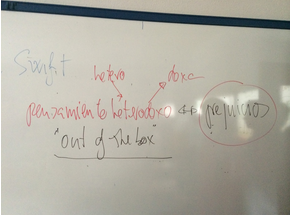 hetero doxa
pensamiento heterodoxo ↔ prejuicios
"out of the box"